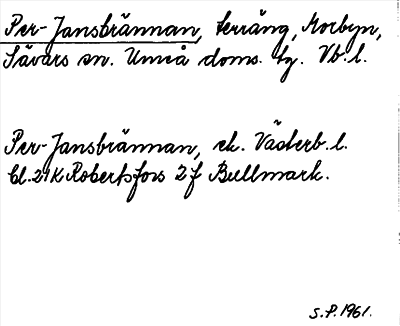 Per-Jansbrännan, terräng, Morbyn,
Sävars sn. Umeå doms. tg. Vb.l.
Per-Jansbrännan, ek. Västerb.l.
bl. 21K Robertsfors 2f Bullmark.
S.P. 1961.